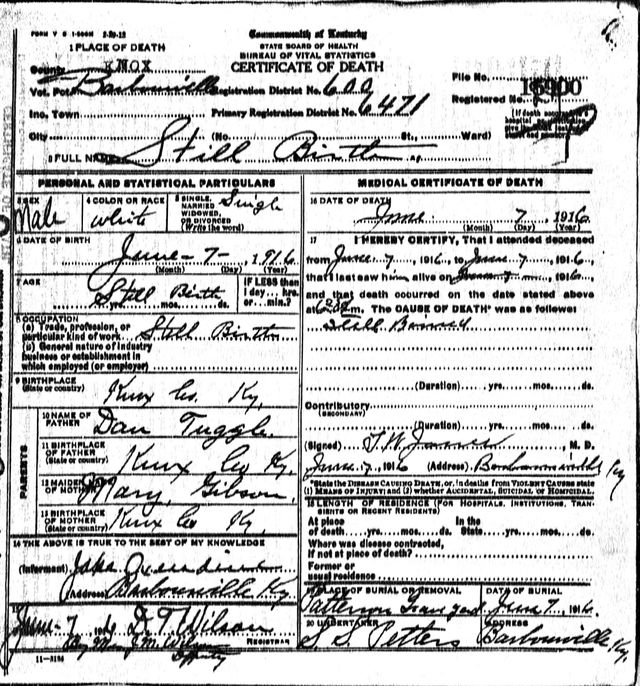 FORM V S 1-500M 2-29-12
Commonwealth of Kentucky
STATE BOARD OF HEALTH
BUREAU OF VITAL STATISTICS
CERTIFICATE OF DEATH
1 PLACE OF DEATH
County KNOX
Vot. Pct. Barbourville Registration District No. 600
File No. 15900
Inc. Town Primary Registration District No. 6471
Registered No.
City (No. St., Ward)
2 FULL NAME Still Birth
PERSONAL AND STATISTICAL PARTICULARS
3 SEX Male
4 COLOR OR RACE white
5 SINGLE, MARRIED WIDOWED, OR DIVORCED (Write the word) Single
6 DATE OF BIRTH June - 7 - 1916
(Month) (Day) (Year)
7 AGE Still Birth
yrs. mos. ds.
IF LESS than 1 day... hrs. or... min.?
8 OCCUPATION
(a) Trade, profession, or particular kind of work Still Birth
(b) General nature of industry business or establishment in which employed (or employer)
9 BIRTHPLACE
(State or country) Knox Co. Ky.
PARENTS
10 NAME OF FATHER Dan Tuggle
11 BIRTHPLACE OF FATHER (State or country) Knox Co Ky.
12 MAIDEN NAME OF MOTHER Mary Gibson
13 BIRTHPLACE OF MOTHER (State or country) Knox Co Ky.
14 THE ABOVE IS TRUE TO THE BEST OF MY KNOWLEDGE
(Informant) Jake
(Address) Barbourville Ky.
15
June - 7 1916 D. T. Wilson
REGISTRAR
Deputy
11-3184
MEDICAL CERTIFICATE OF DEATH
16 DATE OF DEATH
June 7, 1916
(Month) (Day) (Year)
17 I HEREBY CERTIFY, That I attended deceased
from June 7, 1916, to June 7, 1916
that I last saw him alive on June 7, 1916
and that death occurred on the date stated above
at m. The CAUSE OF DEATH* was as follows:
Still Borned
(Duration) yrs. mos. ds.
Contributory
(SECONDARY)
(Duration) yrs. mos. ds.
(Signed) M. D.
June 7, 1916 (Address) Barbourville Ky
*State the DISEASE CAUSING DEATH, or, in deaths from VIOLENT CAUSES state
(1) MEANS OF INJURY; and (2) whether ACCIDENTAL, SUICIDAL or HOMICIDAL.
18 LENGTH OF RESIDENCE (FOR HOSPITALS, INSTITUTIONS, TRANSIENTS OR RECENT RESIDENTS)
At place of death yrs. mos. ds. In the State yrs. mos. ds.
Where was disease contracted,
if not at place of death?
Former or
usual residence
19 PLACE OF BURIAL OR REMOVAL
Patterson Grave yard
DATE OF BURIAL
June 7, 1916
20 UNDERTAKER
S. S. Petters
ADDRESS
Barbourville Ky.